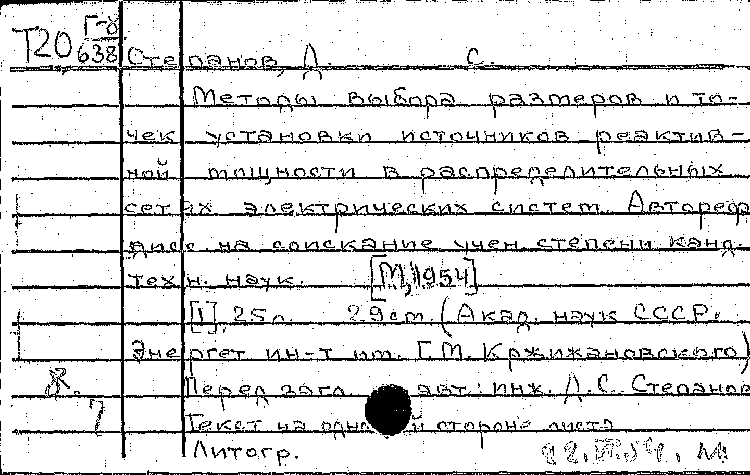 Г-8
Т20, 638 Степанов, Д. С.
Методы выбора размеров и то-
чек установки источников реактив-
ной мощности в распределительных
сетях электрических систем. Автореф.
дисс. на соискание учен. степени канд.
техн. наук. [М., 1954]
[1], 25 л. 29 см. (Акад. наук СССР.
Энергет. ин-т им. Г.М. Кржижановского)
Ж. Перед загл. авт.: инж. Д.С. Степанов
7 Текст на одной стороне листа
Литогр.